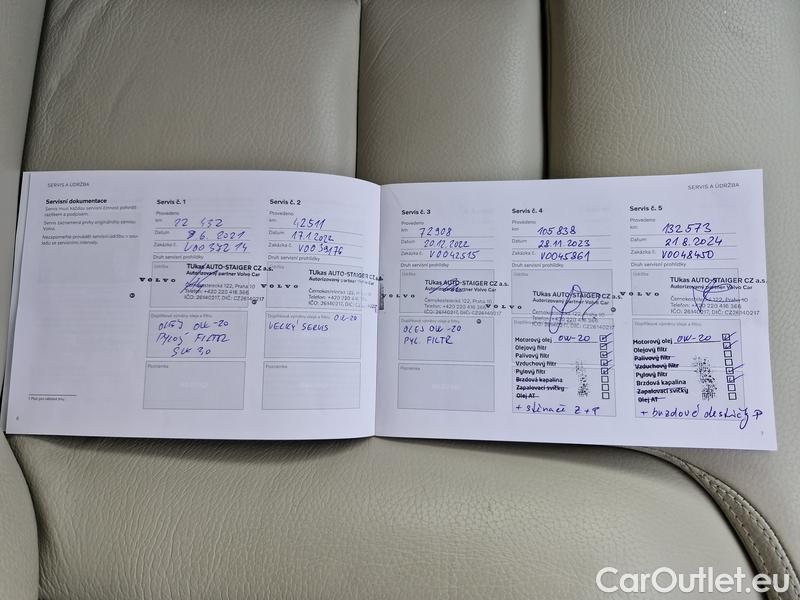 SERVIS A ÚDRŽBA
Servisní dokumentace
Servis musí každou servisní činnost potvrdit
razítkem a podpisem.
Servis zaznamená prvky originálního servisu
Volvo.
Nezapomeňte provádět servisní údržbu v sou-
ladu se servisními intervaly.
6
Servis č. 1
Provedeno
km 22 432
Datum 8.6.2021
Zakázka č. V0037214
Druh servisní prohlídky
Údržba
VOLVO
TUkas AUTO-STAIGER CZ a.s.
Autorizovaný partner Volvo Car
Černokostelecká 122, Praha 10
Telefon: +420 220 416 366
IČO: 26140217, DIČ: CZ26140217
Doplňkové výměny oleje a filtru
OLEJ 0W-20
PYLOVÝ FILTR
Poznámka
Servis č. 2
Provedeno
km 42511
Datum 17.1.2022
Zakázka č. V0039176
Druh servisní prohlídky
Údržba
VOLVO
TUkas AUTO-STAIGER CZ a.s.
Autorizovaný partner Volvo Car
Černokostelecká 122, Praha 10
Telefon: +420 220 416 366
IČO: 26140217, DIČ: CZ26140217
Doplňkové výměny oleje a filtru
0W-20
VELKÝ SERVIS
Poznámka
SERVIS A ÚDRŽBA
Servis č. 3
Provedeno
km 72908
Datum 20.12.2022
Zakázka č. V0042515
Druh servisní prohlídky
Údržba
VOLVO
TUkas AUTO-STAIGER CZ a.s.
Autorizovaný partner Volvo Car
Černokostelecká 122, Praha 10
Telefon: +420 220 416 366
IČO: 26140217, DIČ: CZ26140217
Doplňkové výměny oleje a filtru
OLEJ 0W-20
PYL. FILTR
Poznámka
Servis č. 4
Provedeno
km 105838
Datum 28.11.2023
Zakázka č. V0045861
Druh servisní prohlídky
Údržba
VOLVO
TUkas AUTO-STAIGER CZ a.s.
Autorizovaný partner Volvo Car
Černokostelecká 122, Praha 10
Telefon: +420 220 416 366
IČO: 26140217, DIČ: CZ26140217
Doplňkové výměny oleje a filtru
Motorový olej 0W-20
Olejový filtr
Palivový filtr
Vzduchový filtr
Pylový filtr
Brzdová kapalina
Zapalovací svíčky
Olej AT
+ stírače Z+P
Servis č. 5
Provedeno
km 132573
Datum 21.8.2024
Zakázka č. V0048450
Druh servisní prohlídky
Údržba
VOLVO
TUkas AUTO-STAIGER CZ a.s.
Autorizovaný partner Volvo Car
Černokostelecká 122, Praha 10
Telefon: +420 220 416 366
IČO: 26140217, DIČ: CZ26140217
Doplňkové výměny oleje a filtru
Motorový olej 0W-20
Olejový filtr
Palivový filtr
Vzduchový filtr
Pylový filtr
Brzdová kapalina
Zapalovací svíčky
Olej AT
+ brzdové destičky P
7
CarOutlet.eu